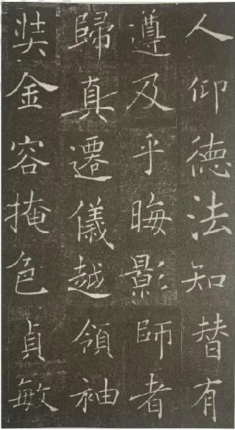 人仰德法知替有
遵及乎晦影師者
歸真遷儀越領袖
奘金容掩色貞敏